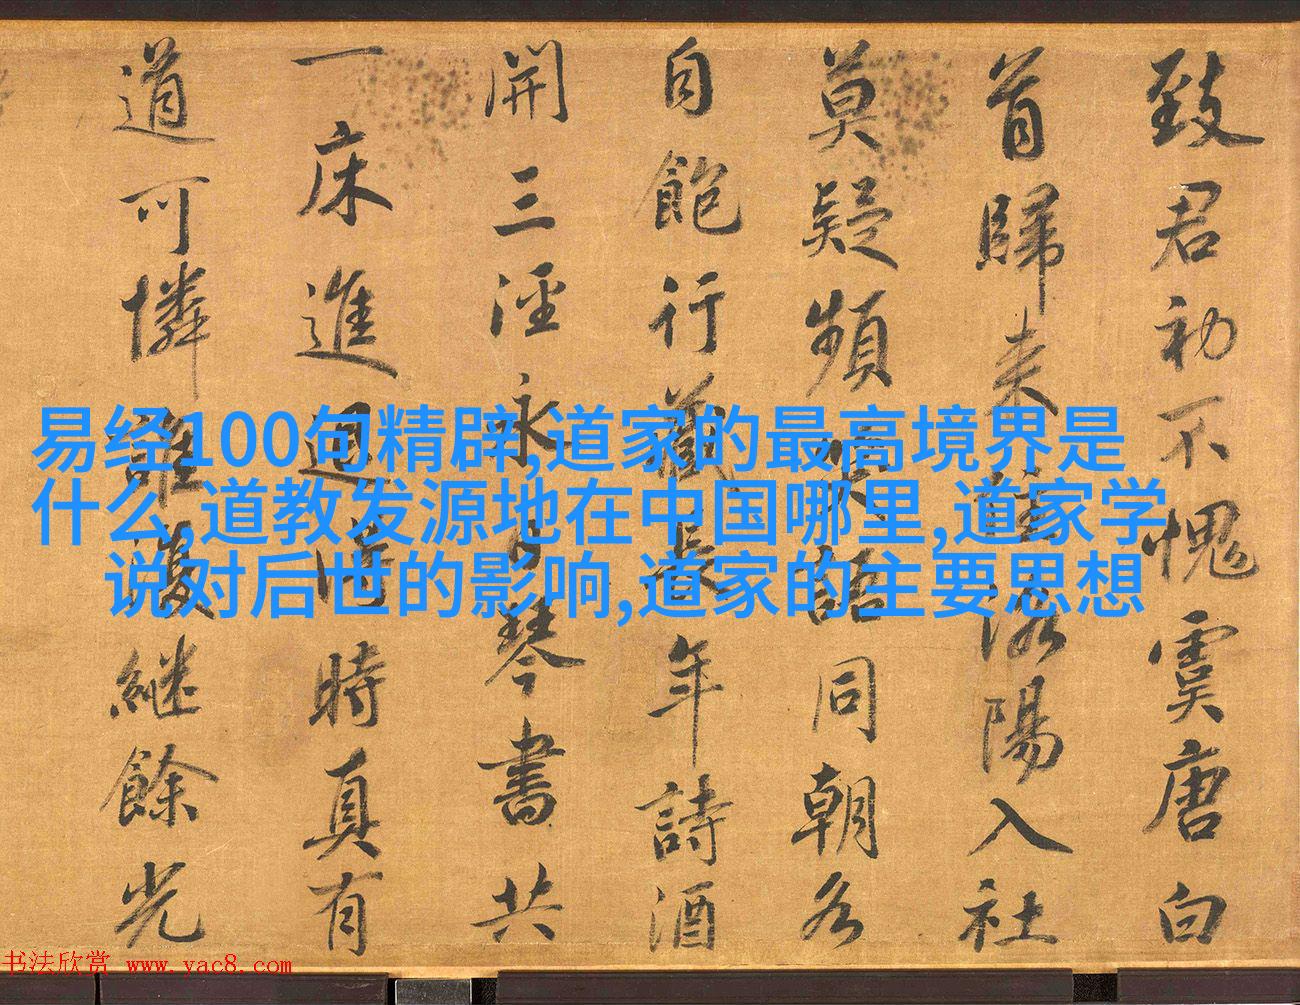 致君初不愧虞唐白
首歸来洛陽入社
莫疑頻笑語同朝各
自飽行藏長年詩酒
開三涇永日琴書共
一床進退得時真有
道可憐誰復繼餘光
易经100句精辟,道家的最高境界是
什么,道教发源地在中国哪里,道家学
说对后世的影响,道家的主要思想
书法欣赏 www.yac8.com